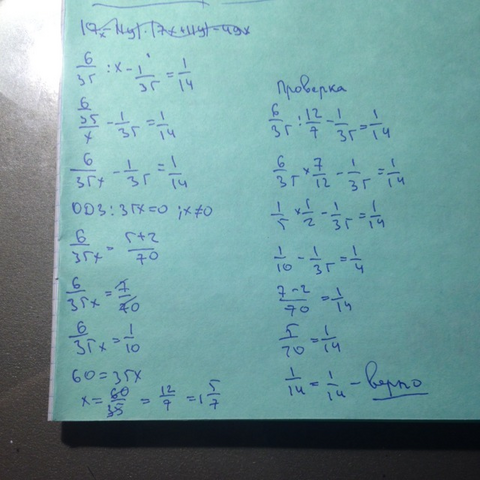 6/35 : x - 1/35 = 1/14
6/35/x - 1/35 = 1/14
6/35x - 1/35 = 1/14
ОДЗ: 35x=0 ; x≠0
6/35x = 5+2/70
6/35x = 7/70
6/35x = 1/10
60=35x
x = 60/35 = 12/7 = 1 5/7
Проверка
6/35 : 12/7 - 1/35 = 1/14
6/35 × 7/12 - 1/35 = 1/14
1/5 × 1/2 - 1/35 = 1/14
1/10 - 1/35 = 1/4
7-2/70 = 1/14
5/70 = 1/14
1/14 = 1/14 - верно